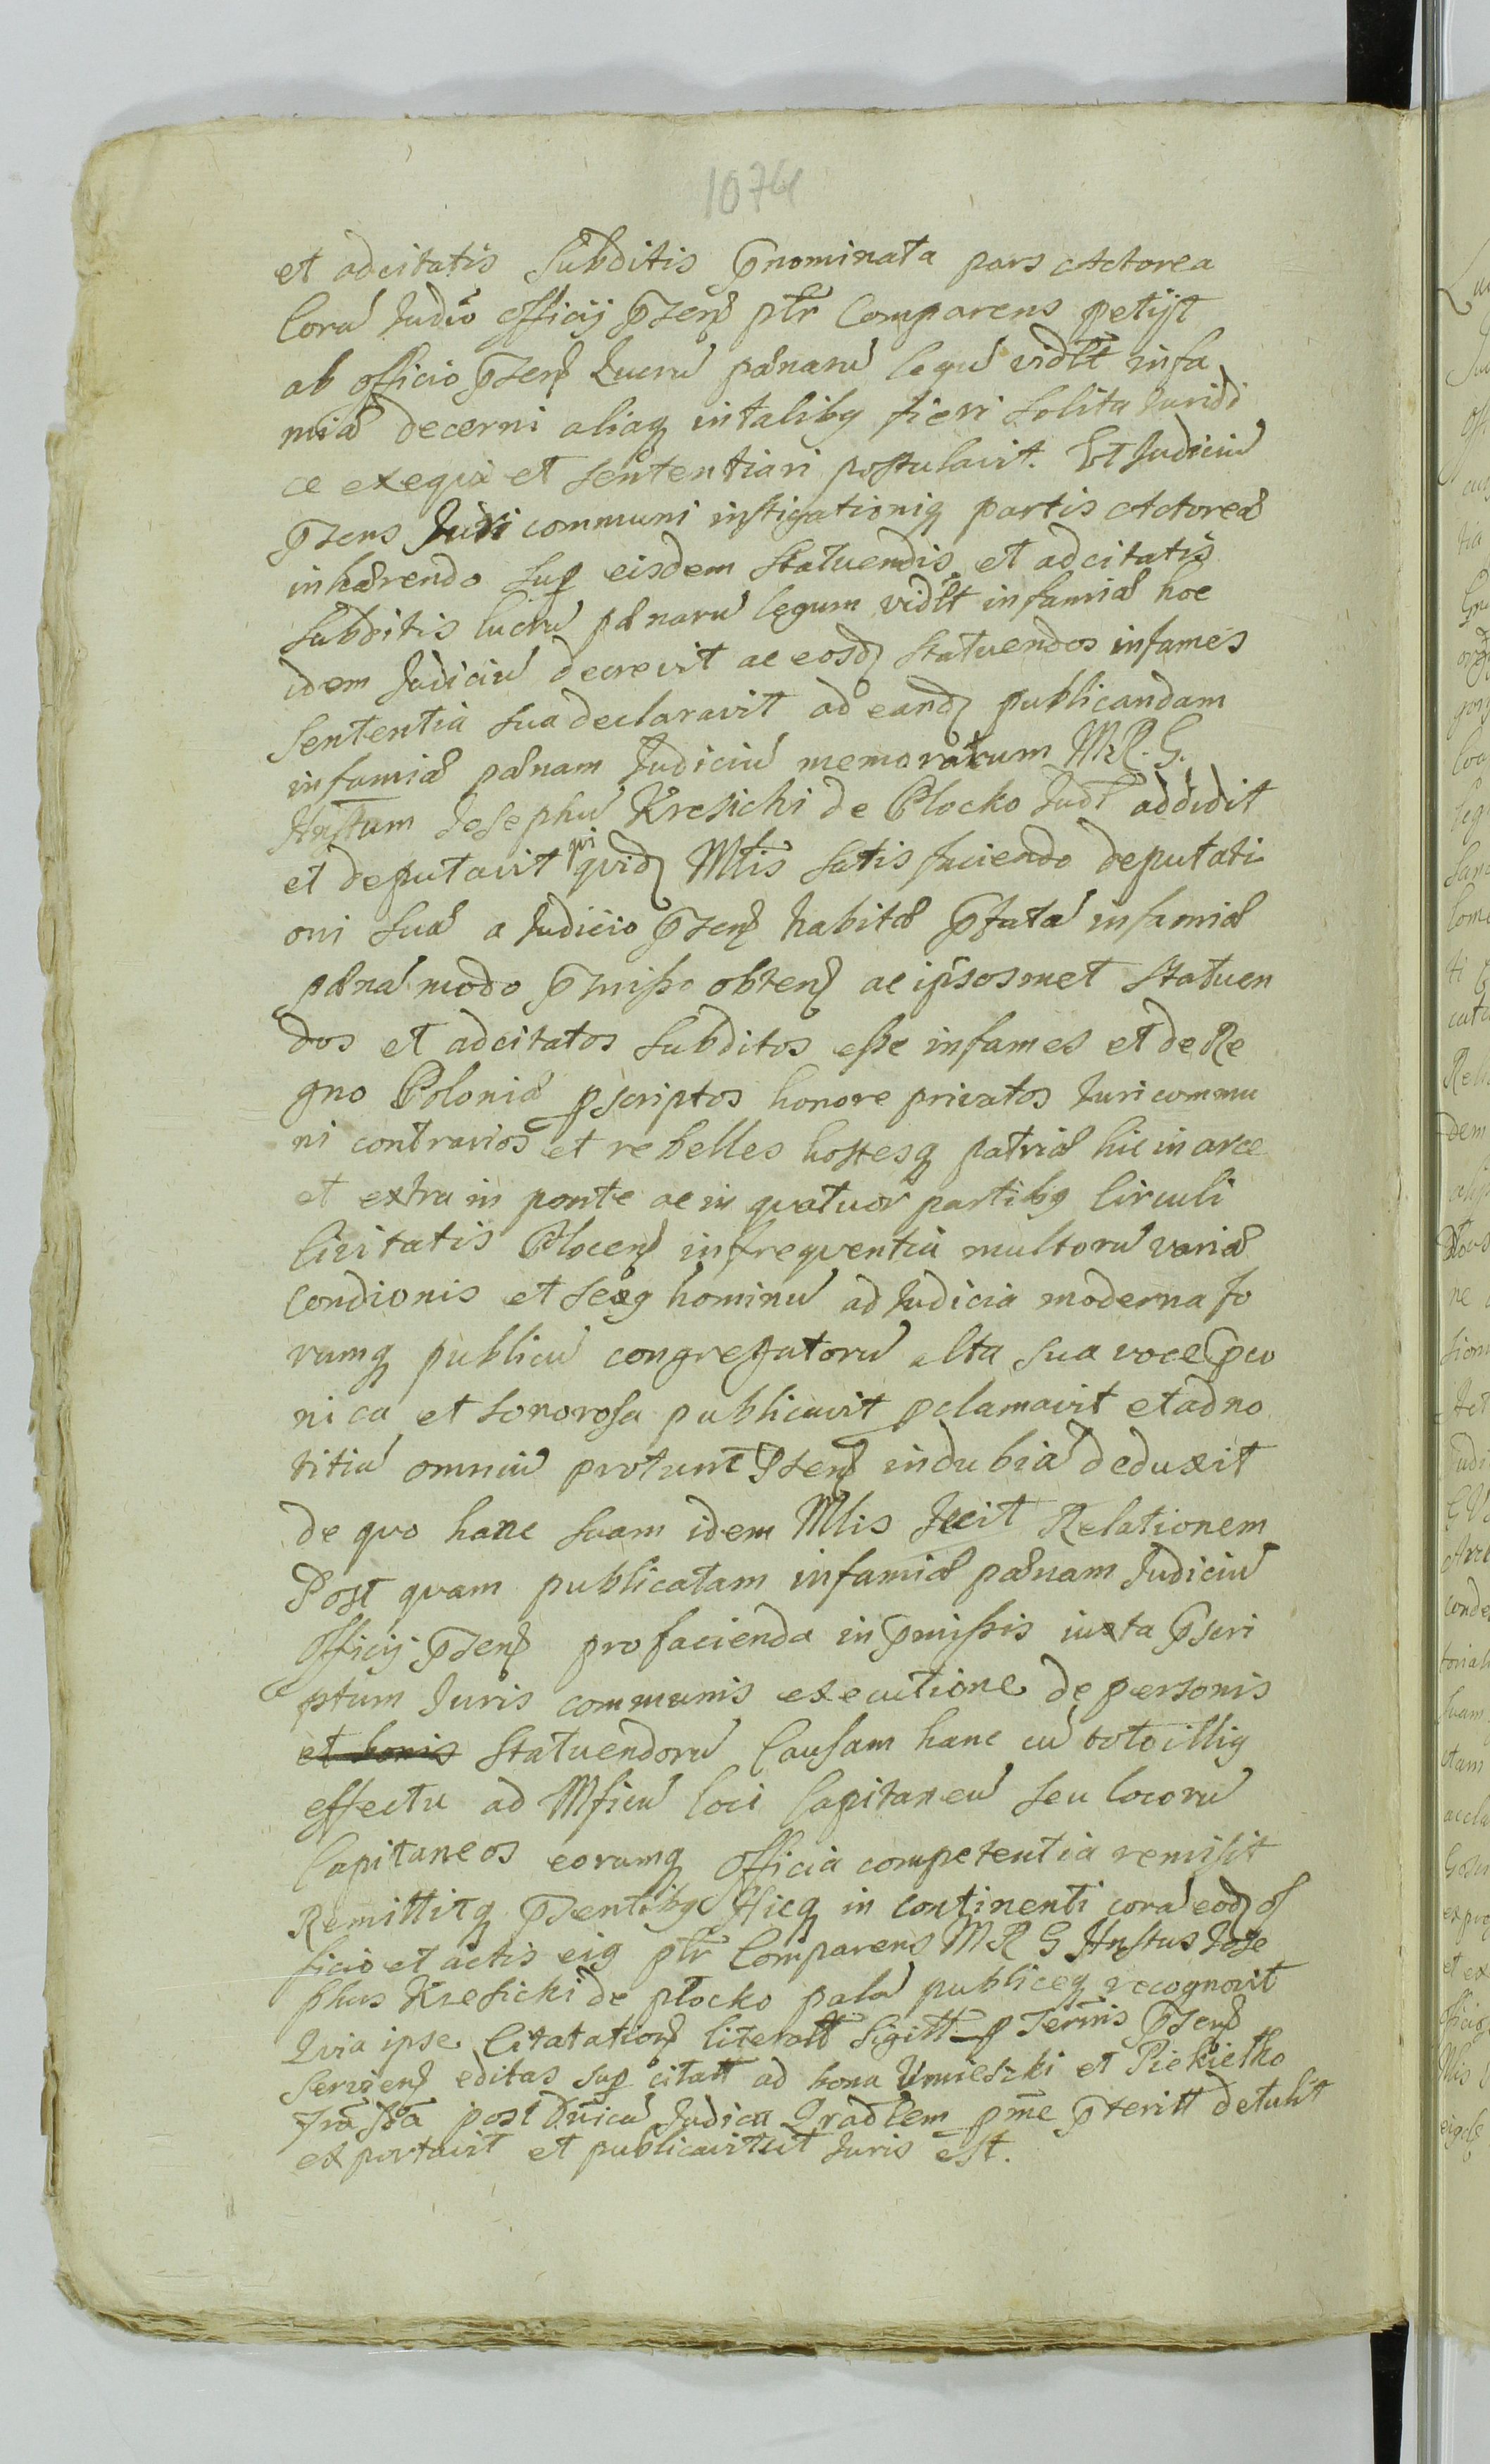 1074
et adcitatis Subditis p̃nominata pars Actorea
Corã Judió officij p̃sen̨ pl̃r Comparens petijt
ab officio p̃sen̨ Lucrũ pænarũ legũ vidl̃t infa
miæ decerni aliaq̨ in talibꝰ fieri Solita Juridi
ce exeqvi et Sententiari postulavit. Et Judiciũ
p̃sens Juri communi instigationiq̨ partis Actoreæ
inhærendo Sup̱ eisdem Statuendis et adcitatis
Subditis lucrũ pænarũ legum vidl̃t infamiæ hoc
idem Judiciũ decrevit ac eosd̨ Statuendos infames
Sententia Sua declaravit ad eand̨ publicandam
infamiæ pænam Judiciũ memoratum M.R.G.
Hn̄stum Josephũ Kresicki de Plocko Judl̃ addidit
et deputavit qvi qvid̨ Ml̃is Satisfaciendo deputati
oni Suæ a Judicio p̃sen̨ habitæ p̃fatã infamiæ
pænã modo p̃misso obten̨ ac ipsosmet Statuen
dos et adcitatos Subditos esse infames et de Re
gno Poloniæ ꝓscriptos honore privatos Juri commu
ni contrarios et rebelles hostesq̨ patriæ hic in arce
et extra in ponte ac in qvatuor partibꝰ Circuli
Civitatis Plocen̨ in freqventia multorũ variæ
Condionis et Sexꝰ hominũ ad Judicia moderna fo
rumq̨ publicũ congregatorũ alta Sua voce p̃co
nica et Sonorosa publicavit ꝓclamavit et ad no
titiã omniũ protunc p̃sen̨ indubiã deduxit
de qvo hanc Suam idem Ml̃is fecit Relationem
Post qvam publicatam infamiæ pænam Judiciũ
Officij p̃sen̨ pro facienda in p̃missis iuxta p̃scri
ptum Juris communis executione de personis
et bonis Statuendorũ Causam hanc cũ toto illiꝰ
effectu ad Mficũ loci Capitaneũ Seu locorũ
Capitaneos eorumq̨ Officia competentia remisit
Remittitq̨ p̃sentibꝰ Hicq̨ in continenti corã eod̨ of
ficio et actis eiꝰ pl̃r Comparens M R G Hn̄stus Jose
phus Kresicki de płocko palã publiceq̨ recognovit
Qvia ipse Citatation̨ literatt̃ Sigitt̃ p̱ Term̃is p̃sen̨
Servien̨ editas Sup̱ citatt̃ ad bona Umieszki et Piekiełko
fr̃a Sc̃da post Dñicã Judica Qvadlem p̱me p̃teritt̃ detulit
exportavit et publicavit ut Juris est.